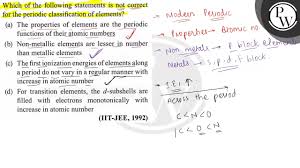 Which of the following statements is not correct
for the periodic classification of elements?
(a) The properties of elements are the periodic
functions of their atomic numbers
(b) Non-metallic elements are lesser in number
than metallic elements
(c) The first ionization energies of elements along
a period do not vary in a regular manner with
increase in atomic number
(d) For transition elements, the d-subshells are
filled with electrons monotonically with
increase in atomic number
(IIT-JEE, 1992)
→ Modern Periodic
→ Properties → Atomic no.
Non metals → P block elements
Metals → S, p, d, f block
→ I.E. ↑
Across the period
C < N < O
C < O < N